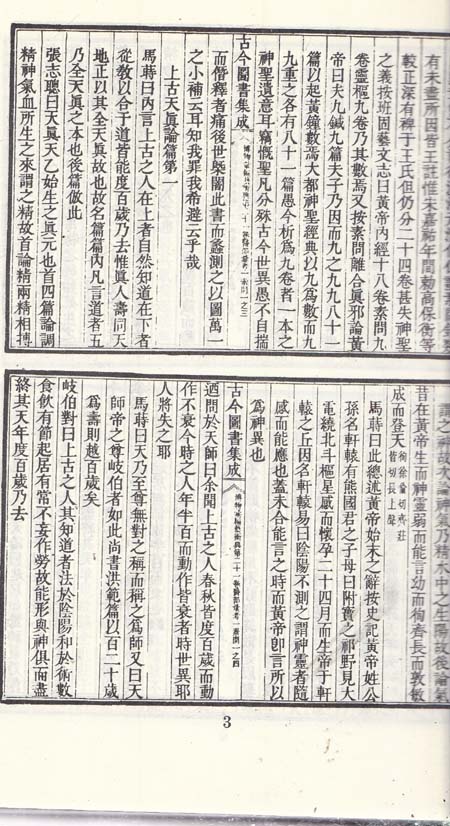 有未盡所因昔王註惟宋嘉祐年間勅高保衡等
較正深有裨于王氏但仍分二十四卷甚失神聖
之義按班固藝文志曰黃帝內經十八卷素問九
卷靈樞九卷乃其數焉又按素問離合眞邪論黃
帝曰夫九鍼九篇夫子乃因而九之九九八十一
篇以起黃鐘數焉大都神聖經典以九爲數而九
九重之各有八十一篇愚今析爲九卷者一本之
神聖遺意耳竊慨聖凡分殊古今世異愚不自揣
古今圖書集成
而僭釋者痛後世槩闇此書而蠡測之以圖萬一
之小補云耳知我罪我希避云乎哉
上古天眞論篇第一
馬蒔曰內言上古之人在上者自然知道在下者
從敎以合于道皆能度百歲乃去惟眞人壽同天
地正以其全天眞故也故名篇篇內凡言道者五
乃全天眞之本也後篇倣此
張志聰曰天眞天乙始生之眞元也首四篇論調
精神氣血所生之來謂之精故首論精兩精相搏
謂之神故次論神氣乃精水中之生陽故後論氣
昔在黃帝生而神靈弱而能言幼而徇齊長而敦敏
成而登天 徇徐倫切齊莊皆切長上聲
馬蒔曰此總述黃帝始末之辭按史記黃帝姓公
孫名軒轅有熊國君之子母曰附寶之祁野見大
電繞北斗樞星感而懷孕二十四月而生帝于軒
轅之丘因名軒轅易曰陰陽不測之謂神靈者隨
感而能應也蓋未合能言之時而黃帝卽言所以
爲神異也
古今圖書集成
迺問於天師曰余聞上古之人春秋皆度百歲而動
作不衰今時之人年半百而動作皆衰者時世異耶
人將失之耶
馬蒔曰天乃至尊無對之稱而稱之爲師又曰天
師帝之尊岐伯者如此尚書洪範篇以百二十歲
爲壽則越百歲矣
岐伯對曰上古之人其知道者法於陰陽和於術數
食飮有節起居有常不妄作勞故能形與神俱而盡
終其天年度百歲乃去
3